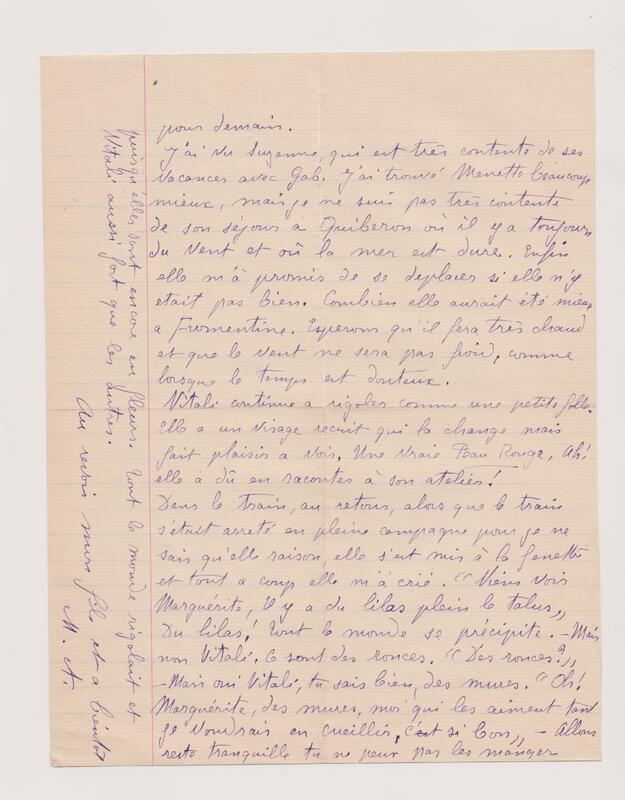 pour demain.
J'ai vu Suzanne, qui est très contente de ses
vacances avec Gab. J'ai trouvé Menette beaucoup
mieux, mais je ne suis pas très contente
de son séjour à Quiberon où il y a toujours
du vent et où la mer est dure. Enfin
elle m'à promis de se deplacer si elle n'y
etait pas bien. Combien elle aurait été mieux
a Fromentine. Esperons qu'il fera très chaud
et que le vent ne sera pas froid, comme
lorsque le temps est douteux.
Vitali continue a rigoler comme une petite folle.
Elle a un visage recuit qui la change mais
fait plaisir a voir. Une vraie Peau Rouge, Ah!
elle à dû en raconter à son atelier!
Dans le train, au retour, alors que le train
s'était arreté en pleine campagne pour je ne
sais qu'elle raison, elle s'est mis à la fenette
et tout a coup elle m'à crié. "Viens vois
Marguérite, il y a du lilas plein le talus„
Du lilas! tout le monde se précipite. - Mais
non Vitali. ce sont des ronces. "Des ronces?„
- Mais oui Vitali, tu sais bien, des mures. "Oh!
Marguérite, des mures, moi qui les aiment tant
je voudrais en cueillir, c'est si bon„ - Allons
reste tranquille tu ne peux pas les manger
puisqu'elles sont encore en fleurs. tout le monde rigolait et
Vitali aussi fort que les autres.
Au revoir mon fils et a bientot
M. A.